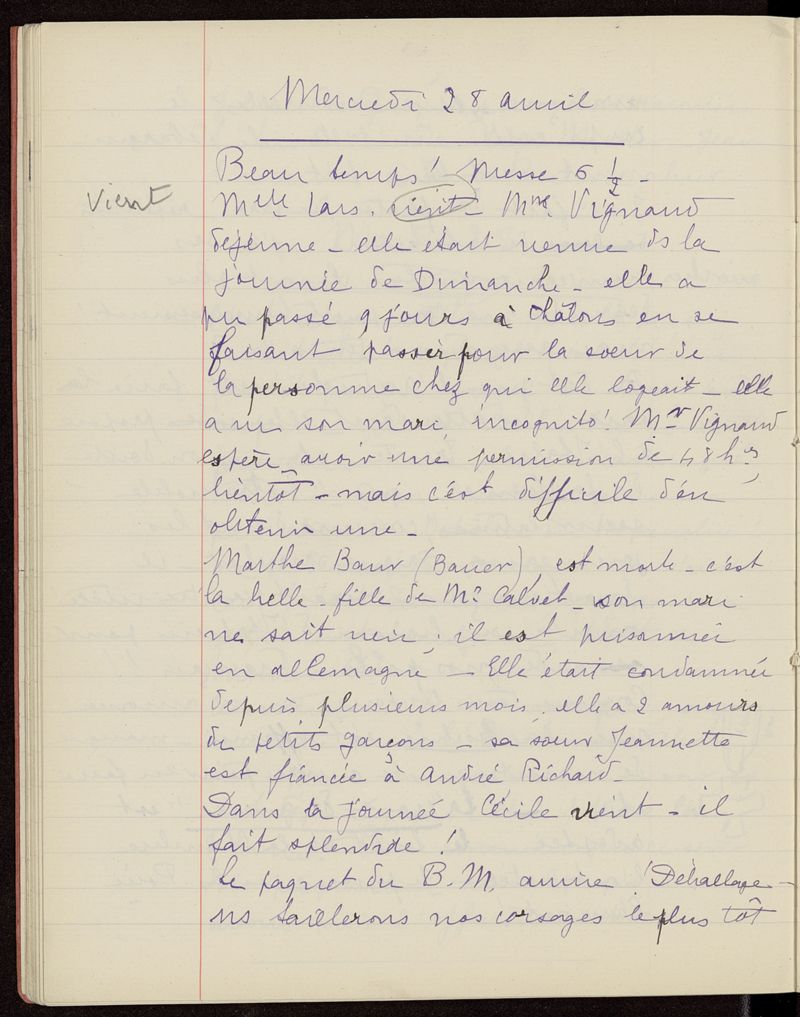 Mercredi 28 avril
Beau temps! Messe 6 1/2 -
Vient
Melle Lars. vient - Mme Vignaud
déjeune - elle était venue ds la
journée de Dimanche - elle a
pu passé 9 jours à Châlons en se
faisant passer pour la soeur de
la personne chez qui elle logeait - elle
a vu son mari, incognito! Mr Vignaud
espère avoir une permission de 48 hes
bientôt - mais c'est difficile d'en
obtenir une -
Marthe Baur (Bauer), est morte - c'est
la belle-fille de Mr Calvet - son mari
ne sait rien; il est prisonnier
en allemagne - Elle était condamnée
depuis plusieurs mois, elle a 2 amours
de petits garçons - sa soeur Jeannette
est fiancée à André Richard -
Dans la journée Cécile vient - il
fait splendide!
Le paquet du B.M. arrive! Déballage -
ns taillerons nos corsages le plus tôt